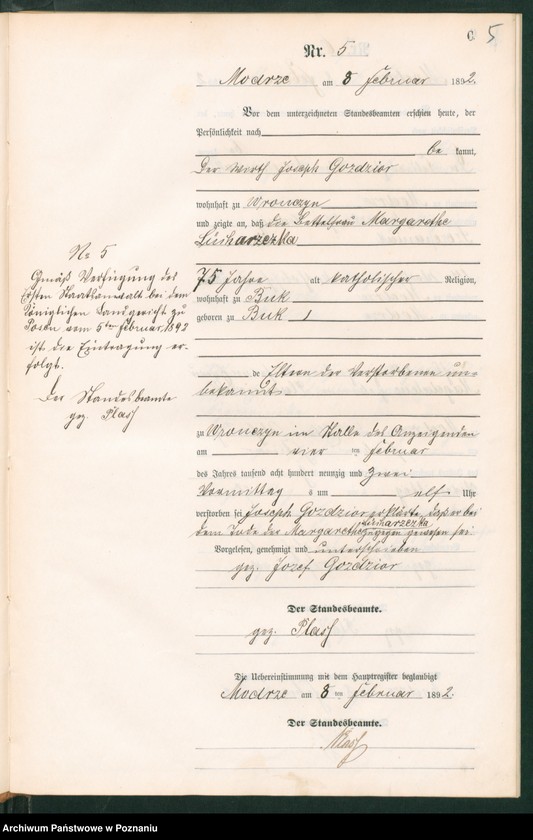 C. 5
Nr. 5
Modrze am 8 Februar 1892.
Vor dem unterzeichneten Standesbeamten erschien heute, der
Persönlichkeit nach
be kannt,
der Wirth Joseph Gozdzior
wohnhaft zu Wronczyn
und zeigte an, daß die Bettelfrau Margarethe
Lücharzezka
75 Jahre alt katholischer Religion,
wohnhaft zu Buk
geboren zu Buk
de Eltern der Verstorbenen un-
bekannt
zu Wronczyn im Stalle des Anzeigenden
am vier ten Februar
des Jahres tausend acht hundert neunzig und zwei
Vormittag s um elf Uhr
verstorben sei Joseph Gozdzior erklärte, daß er bei
dem Tode der Margarethe Lucharzezka zugegen gewesen sei
Vorgelesen, genehmigt und unterschrieben
gez. Jozef Gozdzior
Der Standesbeamte.
gez. Plasch
Die Uebereinstimmung mit dem Hauptregister beglaubigt
Modrze am 8 ten Februar 1892.
Der Standesbeamte.
Plasch
No 5
Gemäß Verfügung des
Ersten Staatsanwalt bei dem
Königlichen Landgericht zu
Posen vom 5ten Februar 1892
ist die Eintragung er-
folgt.
Der Standesbeamte
gez. Plasch
Archiwum Państwowe w Poznaniu